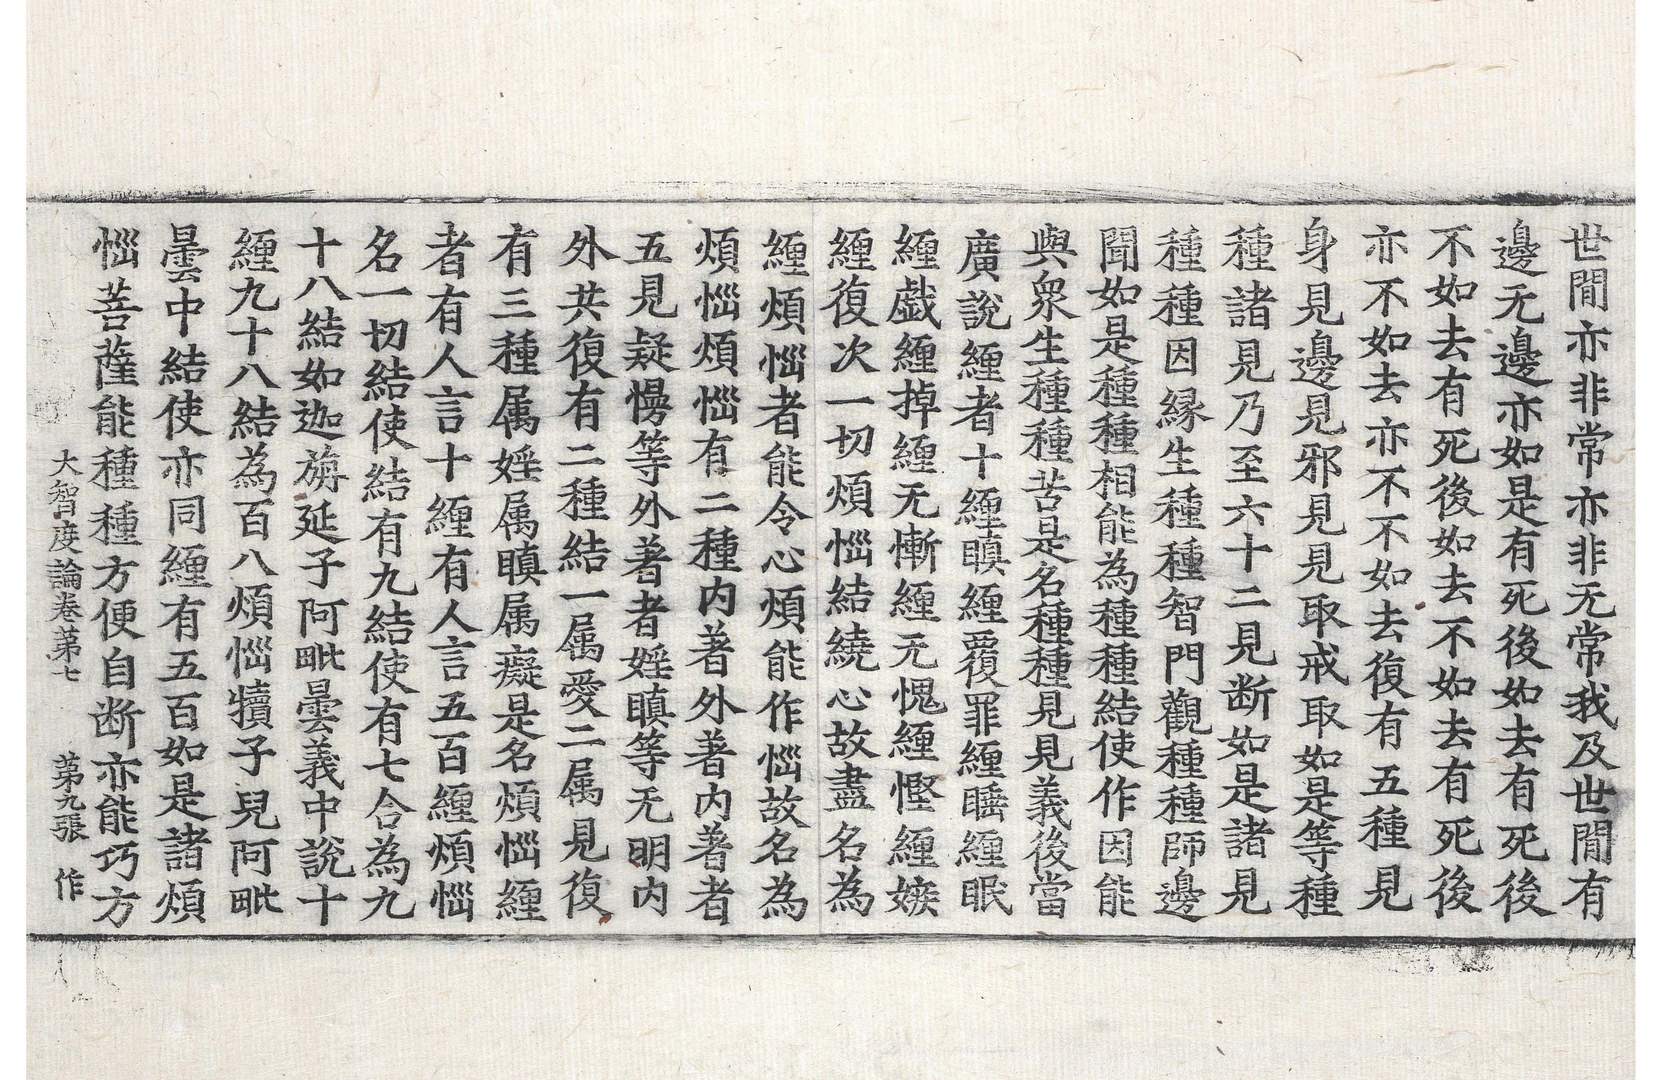 世間亦非常亦非无常我及世間有
邊无邊亦如是有死後如去有死後
不如去有死後如去不如去有死後
亦不如去亦不不如去復有五種見
身見邊見邪見見取戒取如是等種
種諸見乃至六十二見断如是諸見
種種因緣生種種智門觀種種師邊
聞如是種種相能為種種結使作因能
與衆生種種苦是名種種見見義後當
廣說纏者十纏瞋纏覆罪纏睡纏眠
纏戱纏掉纏无慚纏无愧纏慳纏嫉
纏復次一切煩惱結繞心故盡名為
纏煩惱者能令心煩能作惱故名為
煩惱煩惱有二種内著外著内著者
五見疑慢等外著者婬瞋等无明内
外共復有二種結一属愛二属見復
有三種属婬属瞋属癡是名煩惱纏
者有人言十纏有人言五百纏煩惱
名一切結使結有九結使有七合為九
十八結如迦旃延子阿毗曇義中說十
纏九十八結為百八煩惱犢子兒阿毗
曇中結使亦同纏有五百如是諸煩
惱菩薩能種種方便自断亦能巧方
大智度論卷苐七　苐九張　作